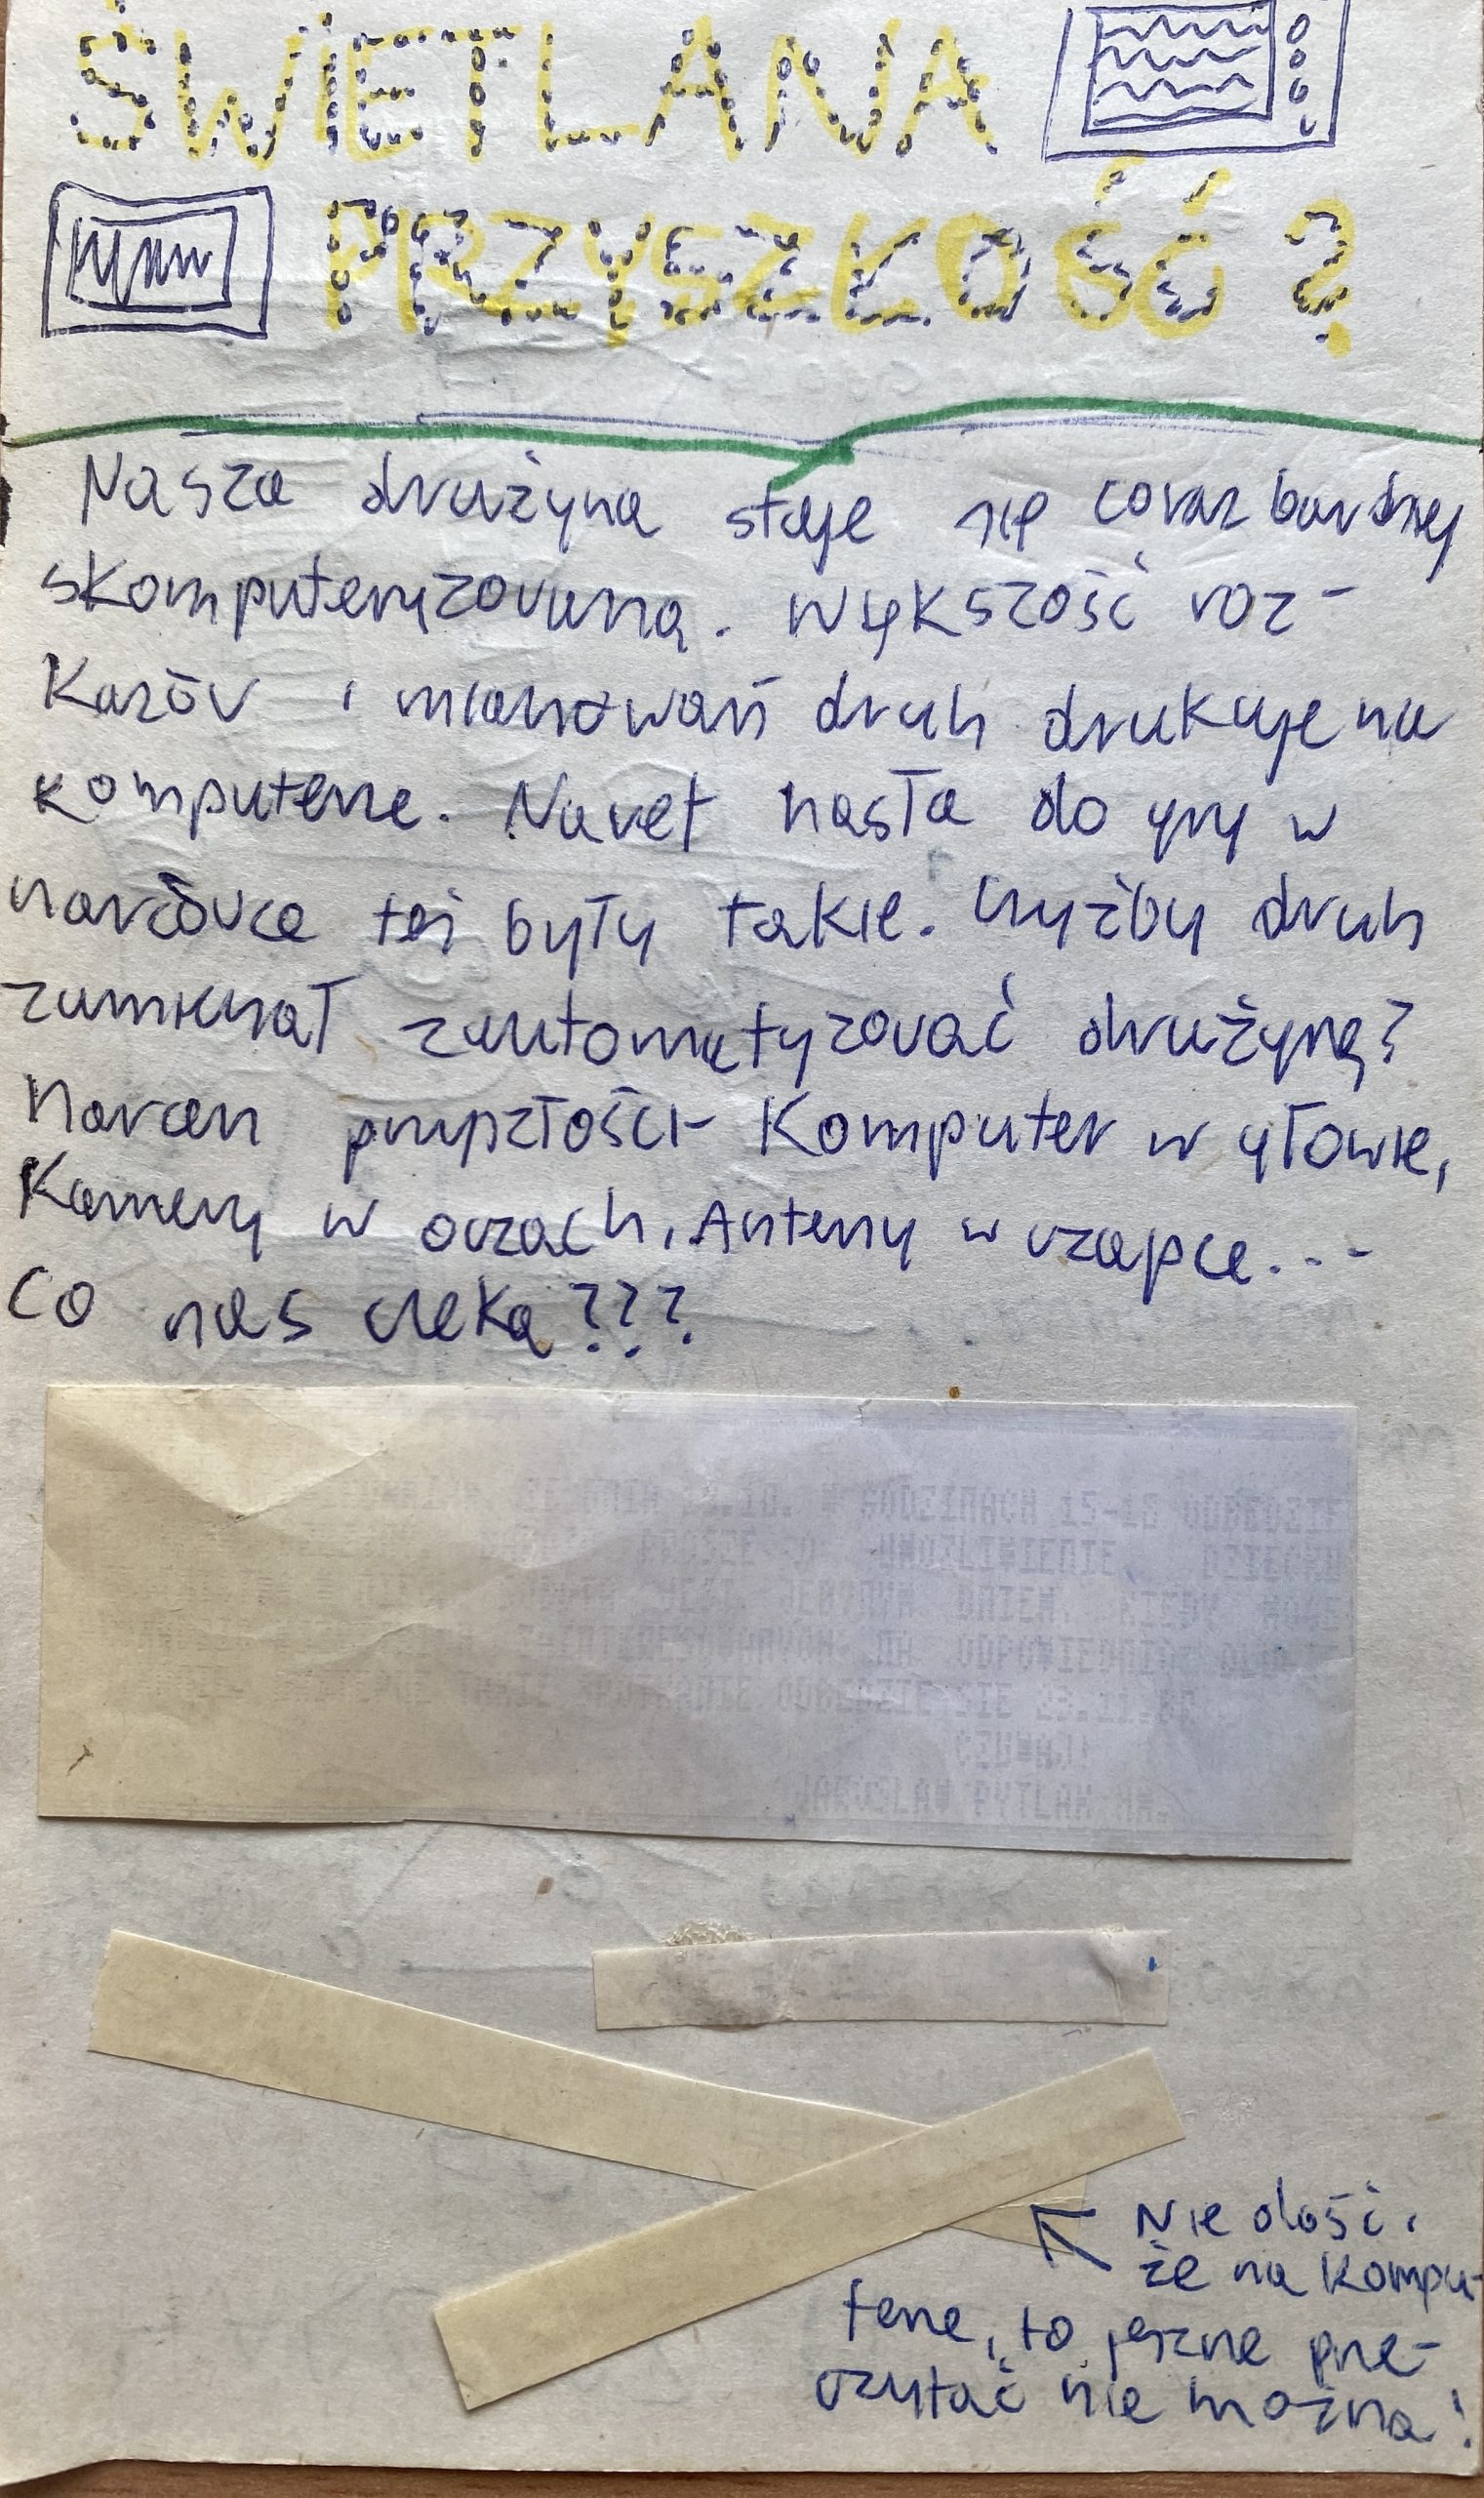 ŚWIETLANA
PRZYSZŁOŚĆ?
Nasza drużyna staje się coraz bardziej
skomputeryzowana. Większość roz-
kazów i mianowań druh drukuje na
komputerze. Nawet hasła do gry w
harcówce też były takie. Czyżby druh
zamierzał zautomatyzować drużynę?
Harcerz przyszłości - Komputer w głowie,
Kamery w oczach, Anteny w czapce...
Co nas czeka???
12.10. W GODZINACH 15-18 ODBĘDZIE
PROSZĘ O UMOŻLIWIENIE DZIECKU
JEST JEDYNYM DNIEM, KIEDY MOGĘ
ZAINTERESOWANYCH NA ODPOWIEDNIO
TAKIE SPOTKANIE ODBĘDZIE SIĘ 23.11.
CZUWAJ!
JAROSŁAW PYTLAK HM.
Nie dość,
że na kompu-
terze, to jeszcze prze-
czytać nie można!